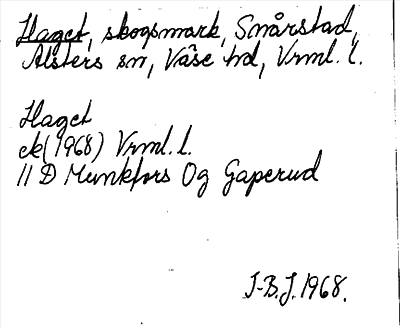 Haget, skogsmark, Smårstad,
Alsters sn, Väse hd, Vrml. l.
Haget
ek(1968) Vrml. l.
11 D Munkfors Og Gaperud
J-B.J. 1968.